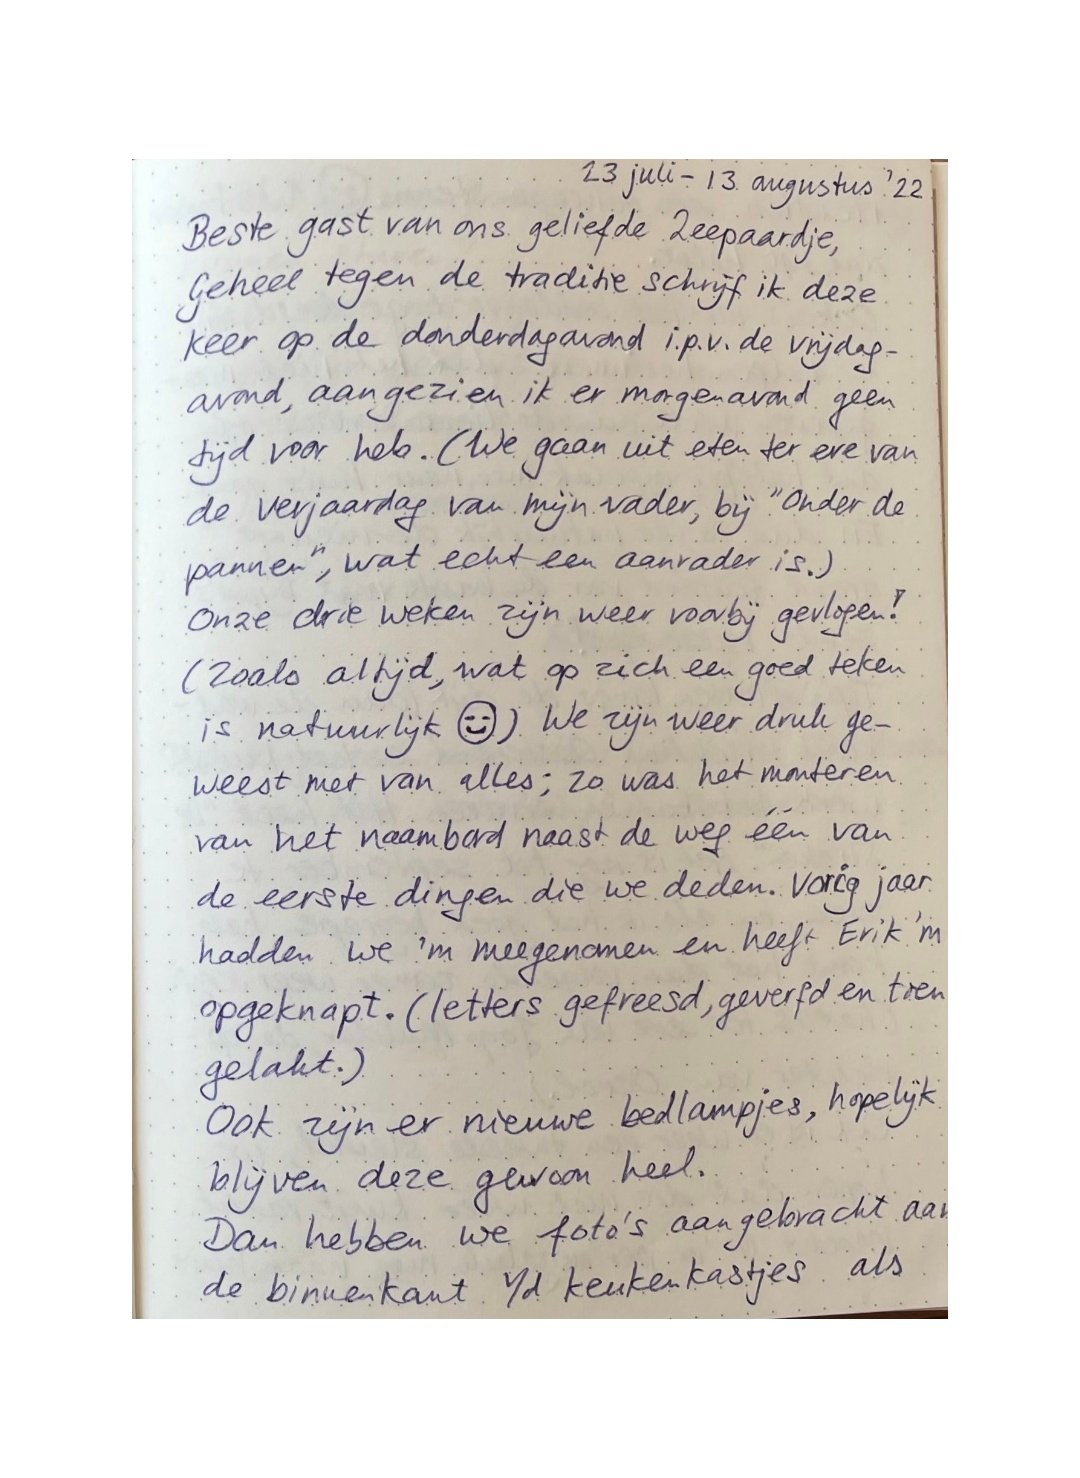 23 juli - 13 augustus '22
Beste gast van ons geliefde Zeepaardje,
Geheel tegen de traditie schrijf ik deze
keer op de donderdagavond i.p.v. de vrijdag-
avond, aangezien ik er morgenavond geen
tijd voor heb. (We gaan uit eten ter ere van
de verjaardag van mijn vader, bij "Onder de
pannen", wat echt een aanrader is.)
Onze drie weken zijn weer voorbij gevlogen!
(Zoals altijd, wat op zich een goed teken
is natuurlijk 😊) We zijn weer druk ge-
weest met van alles; zo was het monteren
van het naambord naast de weg één van
de eerste dingen die we deden. Vorig jaar
hadden we 'm meegenomen en heeft Erik 'm
opgeknapt. (letters gefreesd, geverfd en toen
gelakt.)
Ook zijn er nieuwe bedlampjes, hopelijk
blijven deze gewoon heel.
Dan hebben we foto's aangebracht aan
de binnenkant v/d keukenkastjes als